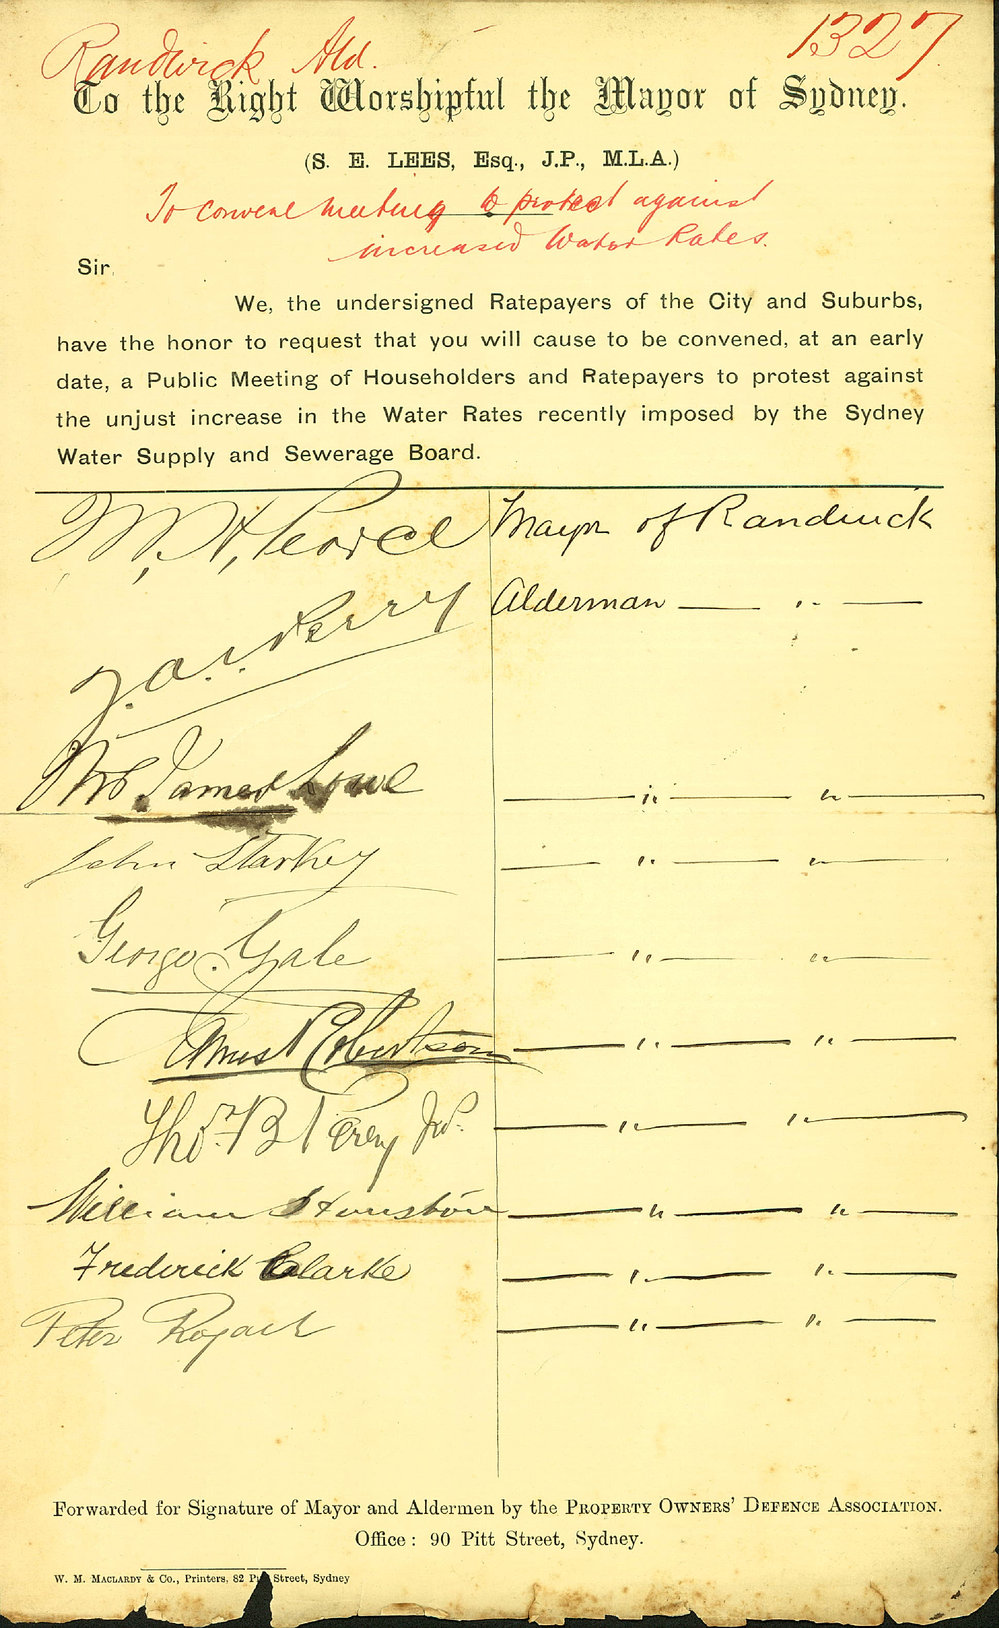 Randwick Ald.
1327
To the Right Worshipful the Mayor of Sydney.
(S. E. LEES, Esq., J.P., M.L.A.)
To convene meeting to protest against
increased Water Rates.
Sir,
We, the undersigned Ratepayers of the City and Suburbs,
have the honor to request that you will cause to be convened, at an early
date, a Public Meeting of Householders and Ratepayers to protest against
the unjust increase in the Water Rates recently imposed by the Sydney
Water Supply and Sewerage Board.
W. H. Mayor of Randwick
Perry Alderman — " —
James Lowe — " — " —
John Starkey — " — " —
George Gale — " — " —
Robertson — " — " —
Thos. B — " — " —
William — " — " —
Frederick Clarke — " — " —
Peter — " — " —
Forwarded for Signature of Mayor and Aldermen by the PROPERTY OWNERS' DEFENCE ASSOCIATION.
Office: 90 Pitt Street, Sydney.
W. M. MACLARDY & Co., Printers, 82 Street, Sydney